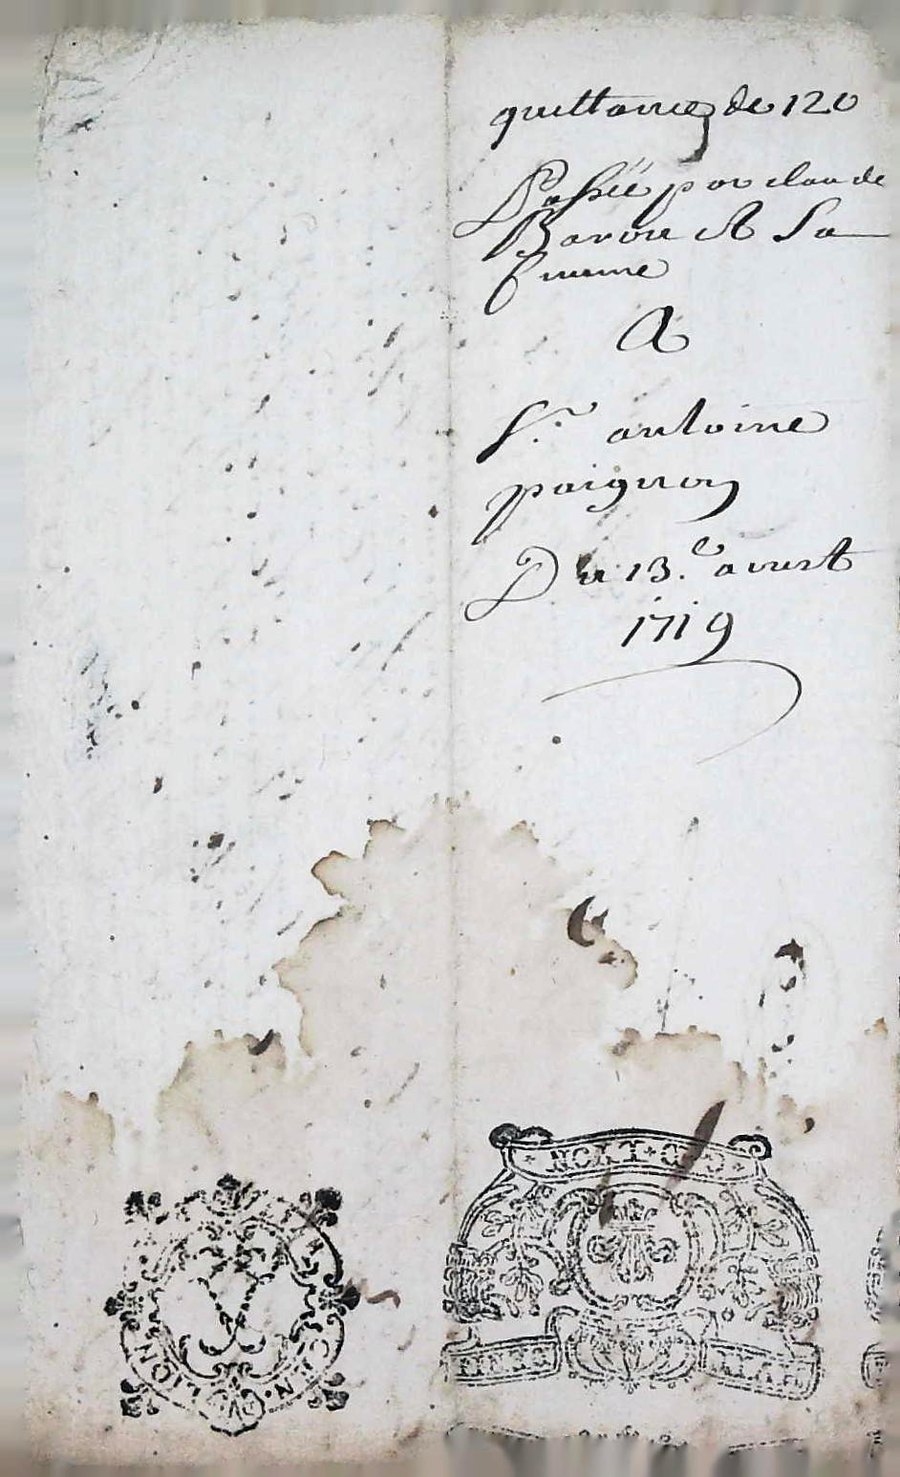 quittance de 120
Passée par claude
Baroue et Sa
femme
A
Sr. antoine
poignon
Du 13.e aoust
1719
LION
GEN